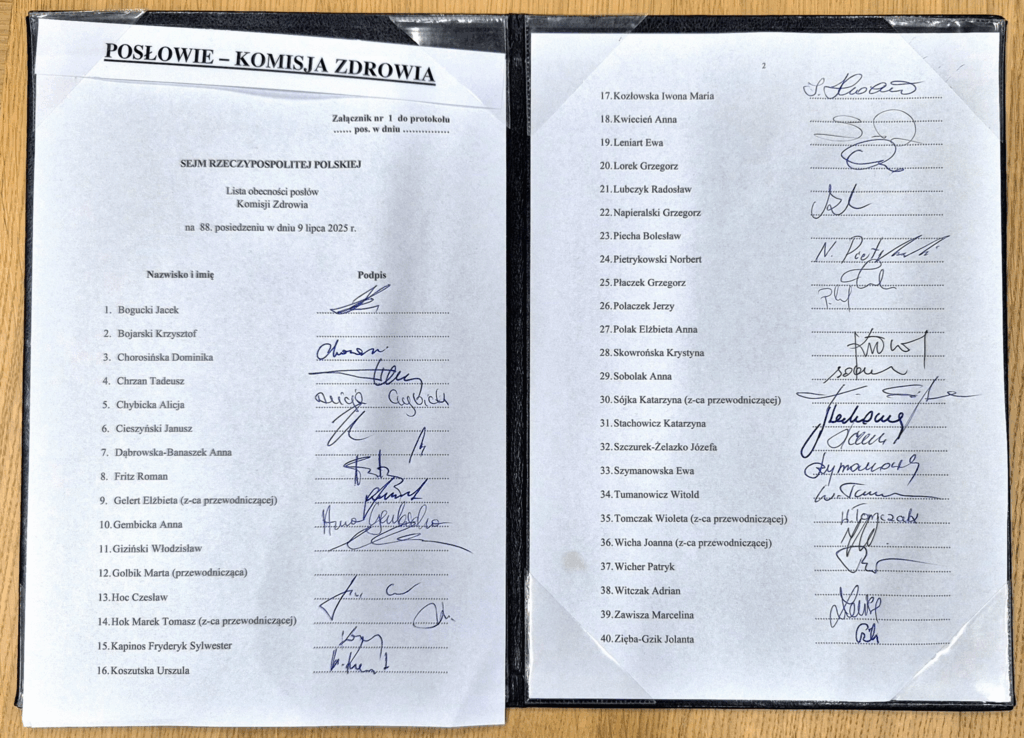 POSŁOWIE – KOMISJA ZDROWIA
Załącznik nr 1 do protokołu
...... pos. w dniu ..............
SEJM RZECZYPOSPOLITEJ POLSKIEJ
Lista obecności posłów
Komisji Zdrowia
na 88. posiedzeniu w dniu 9 lipca 2025 r.
Nazwisko i imię Podpis
1. Bogucki Jacek
2. Bojarski Krzysztof
3. Chorosińska Dominika
4. Chrzan Tadeusz
5. Chybicka Alicja Alicja Chybicka
6. Cieszyński Janusz
7. Dąbrowska-Banaszek Anna
8. Fritz Roman
9. Gelert Elżbieta (z-ca przewodniczącej)
10. Gembicka Anna Anna Gembicka
11. Giziński Włodzisław
12. Golbik Marta (przewodnicząca)
13. Hoc Czesław
14. Hok Marek Tomasz (z-ca przewodniczącej)
15. Kapinos Fryderyk Sylwester
16. Koszutska Urszula
2
17. Kozłowska Iwona Maria
18. Kwiecień Anna
19. Leniart Ewa
20. Lorek Grzegorz
21. Lubczyk Radosław
22. Napieralski Grzegorz
23. Piecha Bolesław
24. Pietrykowski Norbert
25. Płaczek Grzegorz
26. Polaczek Jerzy
27. Polak Elżbieta Anna
28. Skowrońska Krystyna
29. Sobolak Anna
30. Sójka Katarzyna (z-ca przewodniczącej)
31. Stachowicz Katarzyna
32. Szczurek-Żelazko Józefa
33. Szymanowska Ewa
34. Tumanowicz Witold
35. Tomczak Wioleta (z-ca przewodniczącej) W.Tomczak
36. Wicha Joanna (z-ca przewodniczącej)
37. Wicher Patryk
38. Witczak Adrian
39. Zawisza Marcelina
40. Zięba-Gzik Jolanta